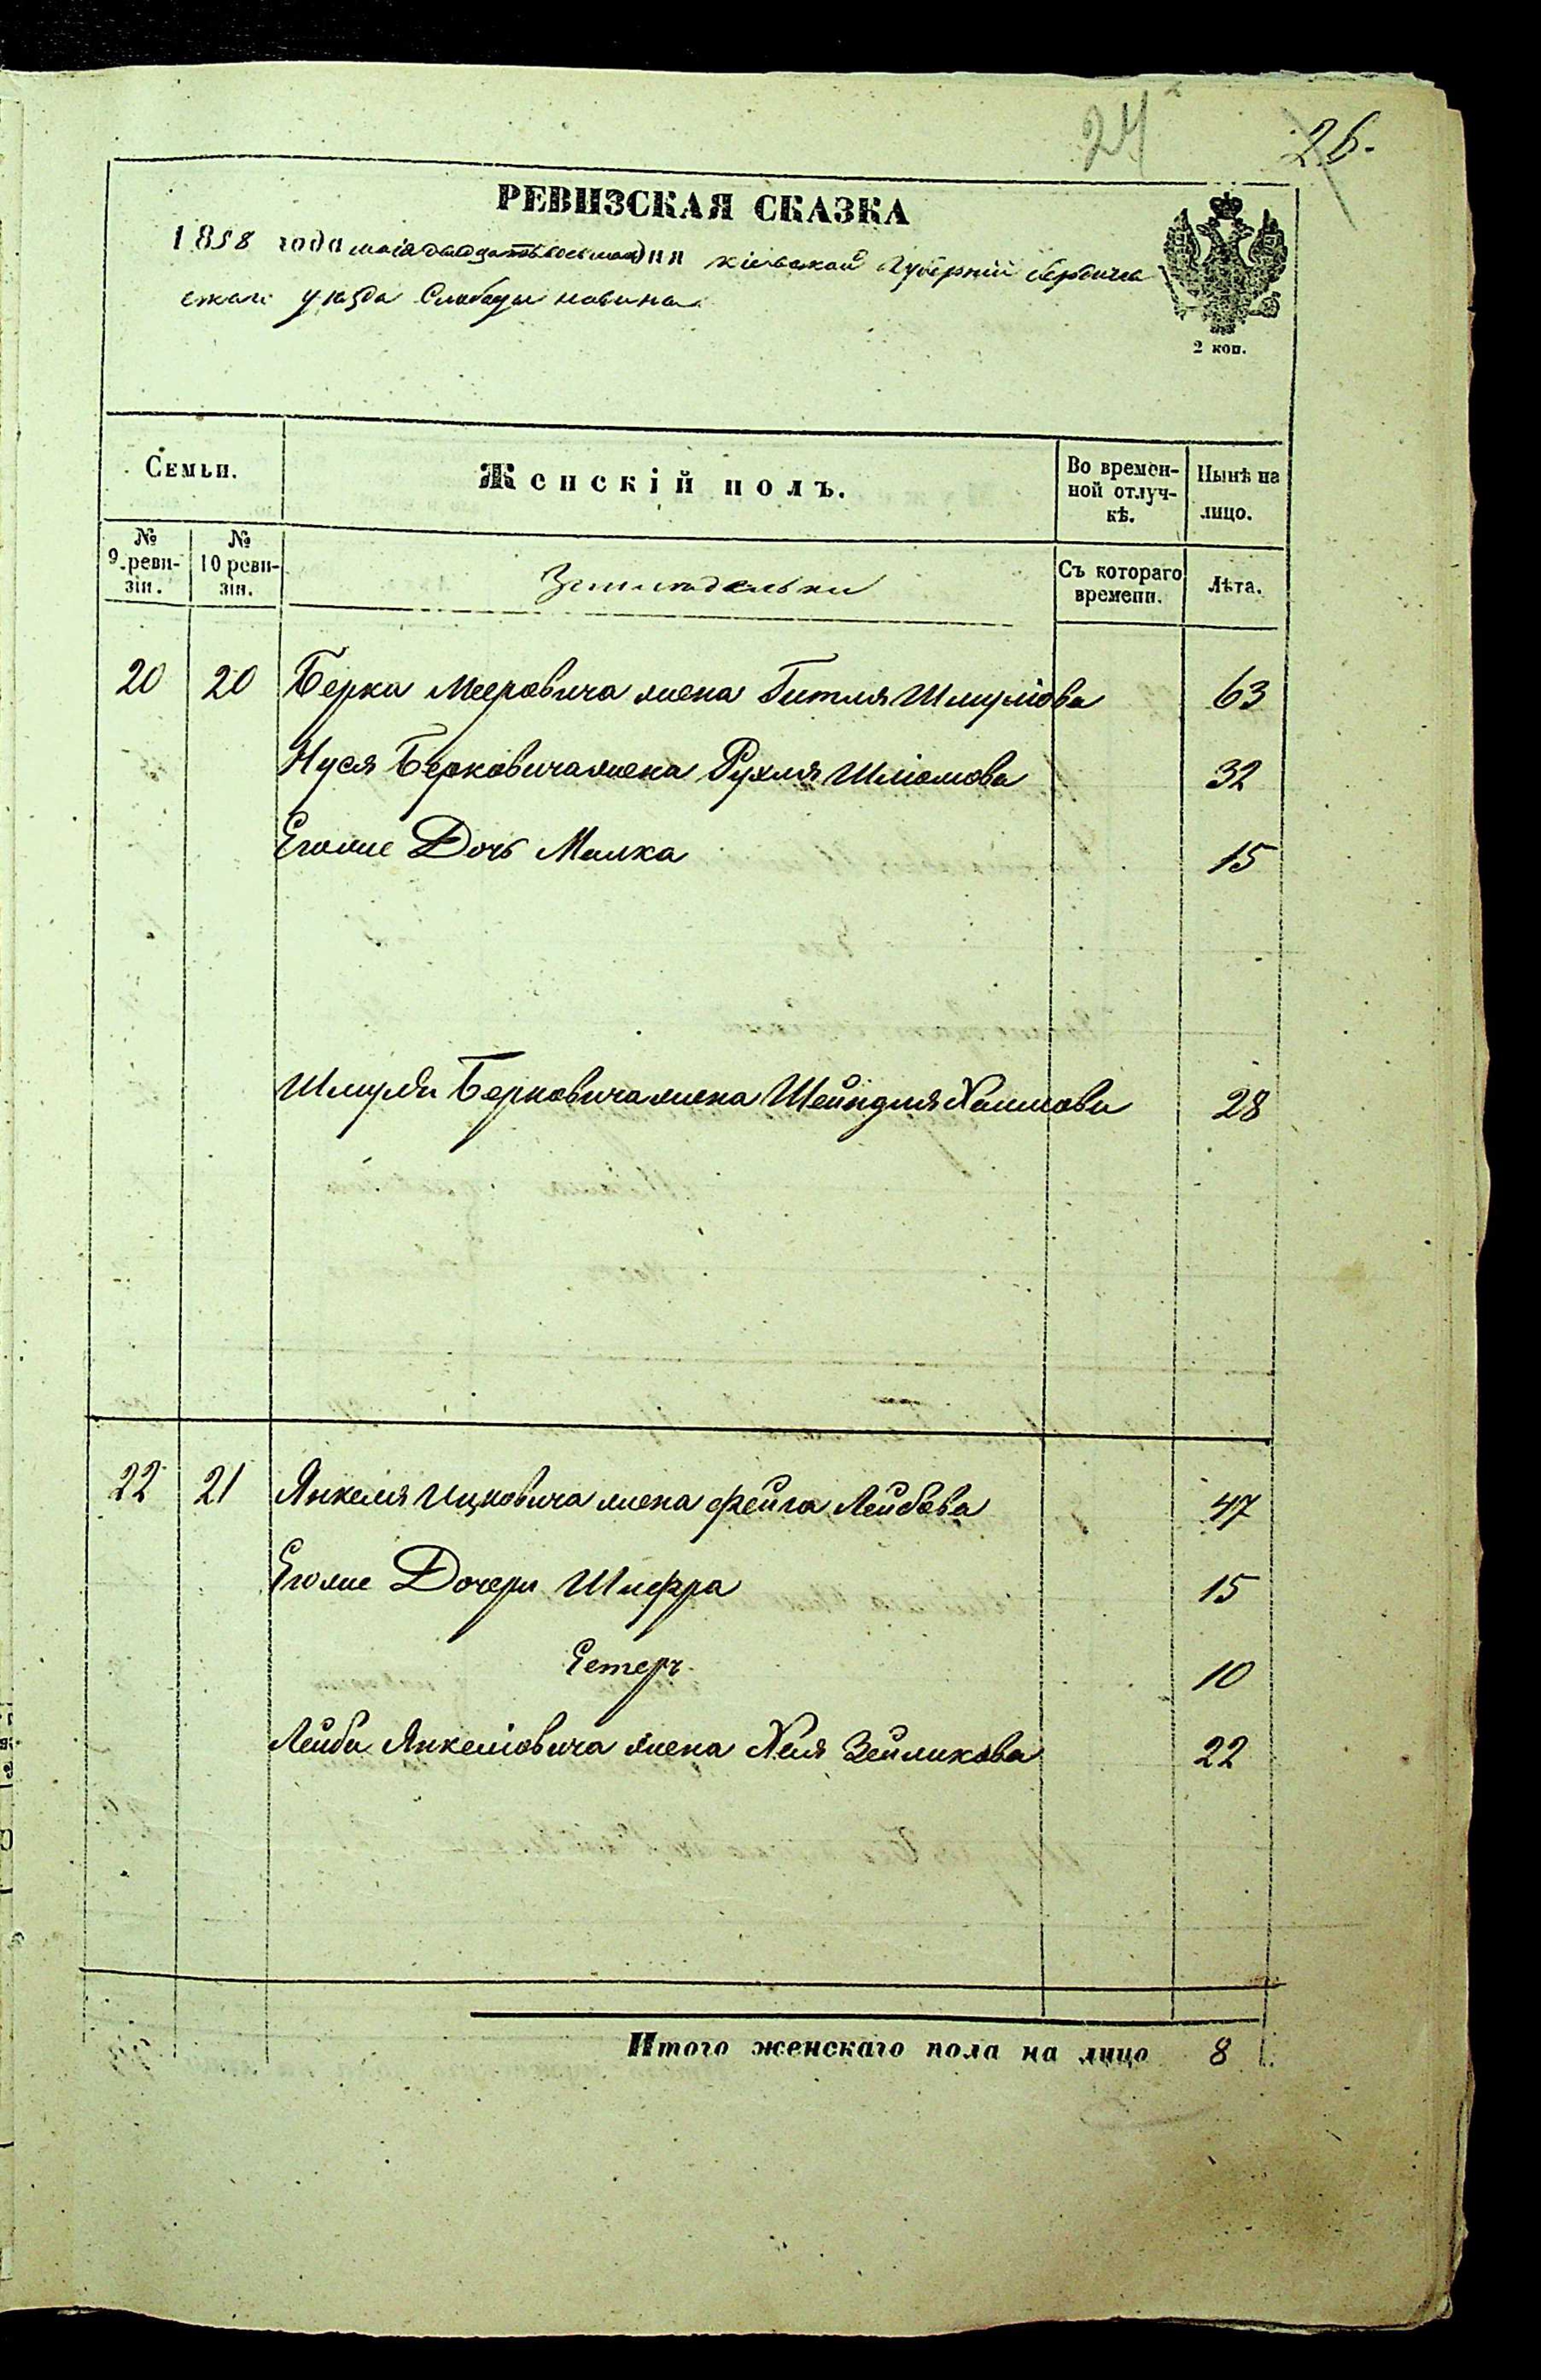 24
26.
РЕВИЗСКАЯ СКАЗКА
1858 года маія двадцать восьмаго дня Кіевской Губерніи Бердичев
скаго уѣзда Слободы новина
2 коп.
Семьи.
Женскій полъ.
Во времен-
ной отлуч-
кѣ.
Нынѣ на
лицо.
№
9 реви-
зіи.
№
10 реви-
зіи.
Земледельки
Съ котораго
времени.
Лѣта.
20 20 Берка Мееровича жена Гитля Шмулiова 63
Нуся Берковича жена Рухля Шліомова 32
Егоже Дочь Малка 15
Шмуля Берковича жена Шейндля Хаимова 28
22 21 Янкеля Ицковича жена Фейга Лейбова 47
Егоже Дочери Шифра 15
Естеръ 10
Лейби Янкеліовича жена Хая Зейликова 22
Итого женскаго пола на лицо 8